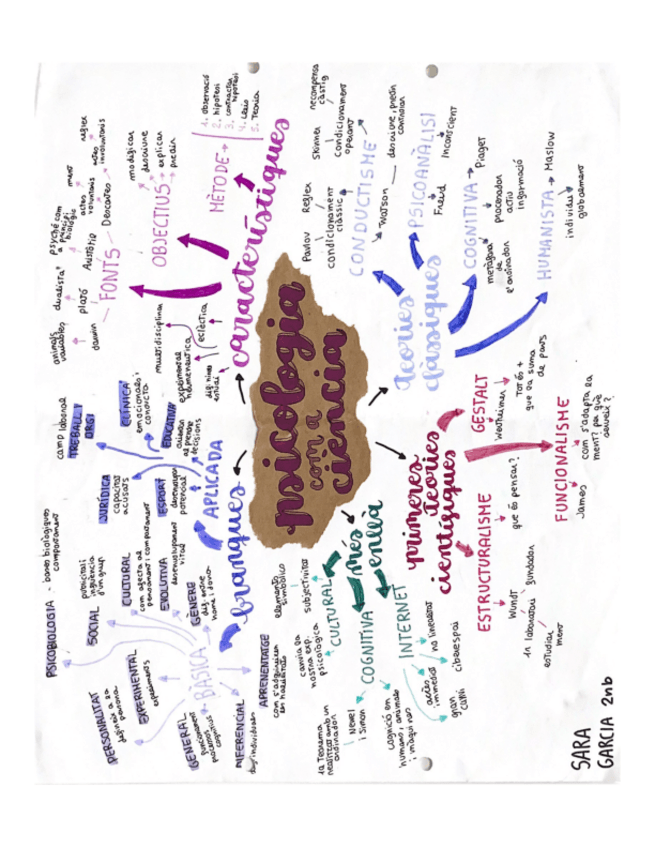 psicologia
com a
ciencia
característiques
FONTS
animals
variables
darwin
dualista
plató
psyché com
a principi
biològic
Aristòtil
ment
actes
voluntaris
Descartes
reflex
actes
involuntaris
OBJECTIUS
modificar
descriure
explicar
predir
MÈTODE
1. observació
2. hipotesi
3. contractar
hipotesi
4. Lleis
5. Teoria
multidisciplinar
eclèctica
experimental
hermeneutica
teories
clàssiques
CONDUCTISME
Pavlov
Reflex
condicionament
clàssic
Skinner
recompensa
càstig
condicionament
operant
Watson
descriure, predir
controlar
PSICOANÀLISI
Freud
Inconscient
COGNITIVA
Piaget
metàfora
de
l'ordinador
processador
actiu
informació
HUMANISTA
Maslow
individu
globalment
primeres
teories
científiques
GESTALT
Wertheimer
Tot és +
que la suma
de parts
FUNCIONALISME
James
com s'adapta la
ment? per què
serveix?
ESTRUCTURALISME
què és pensar?
Wundt
1r laboratori
fundador
estudiar
ment
més
enllà
CULTURAL
elements
simbòlics
subjectivitat
canvia la
nostra exp.
psicològica
COGNITIVA
1a Teorema
realitzat amb un
ordinador
Newel
i Simon
cognició en
humans, animals
i màquines
INTERNET
no linealitat
ciberespai
accés
immediat
gran
canvi
branques
APLICADA
TREBALL I
ORG
camp laboral
CLÍNICA
emocionals i
conducta
EDUCATIVA
prendre
decisions
JURÍDICA
capacitat
acusats
ESPORT
desenvolupar
potencial
BÀSICA
PSICOBIOLOGIA - bases biològiques
comportament
SOCIAL
influència
d'un grup
CULTURAL
com afecta al
pensament i comportament
EVOLUTIVA
desenvolupament
vital
GÈNERE
dif. entre
home i dona
PERSONALITAT
defineix a la
persona
EXPERIMENTAL
experiments
GENERAL
funcionament
processos
cognitius
DIFERENCIAL
dif. individuals
APRENENTATGE
com s'adquireixen
SARA
GARCIA 2nb